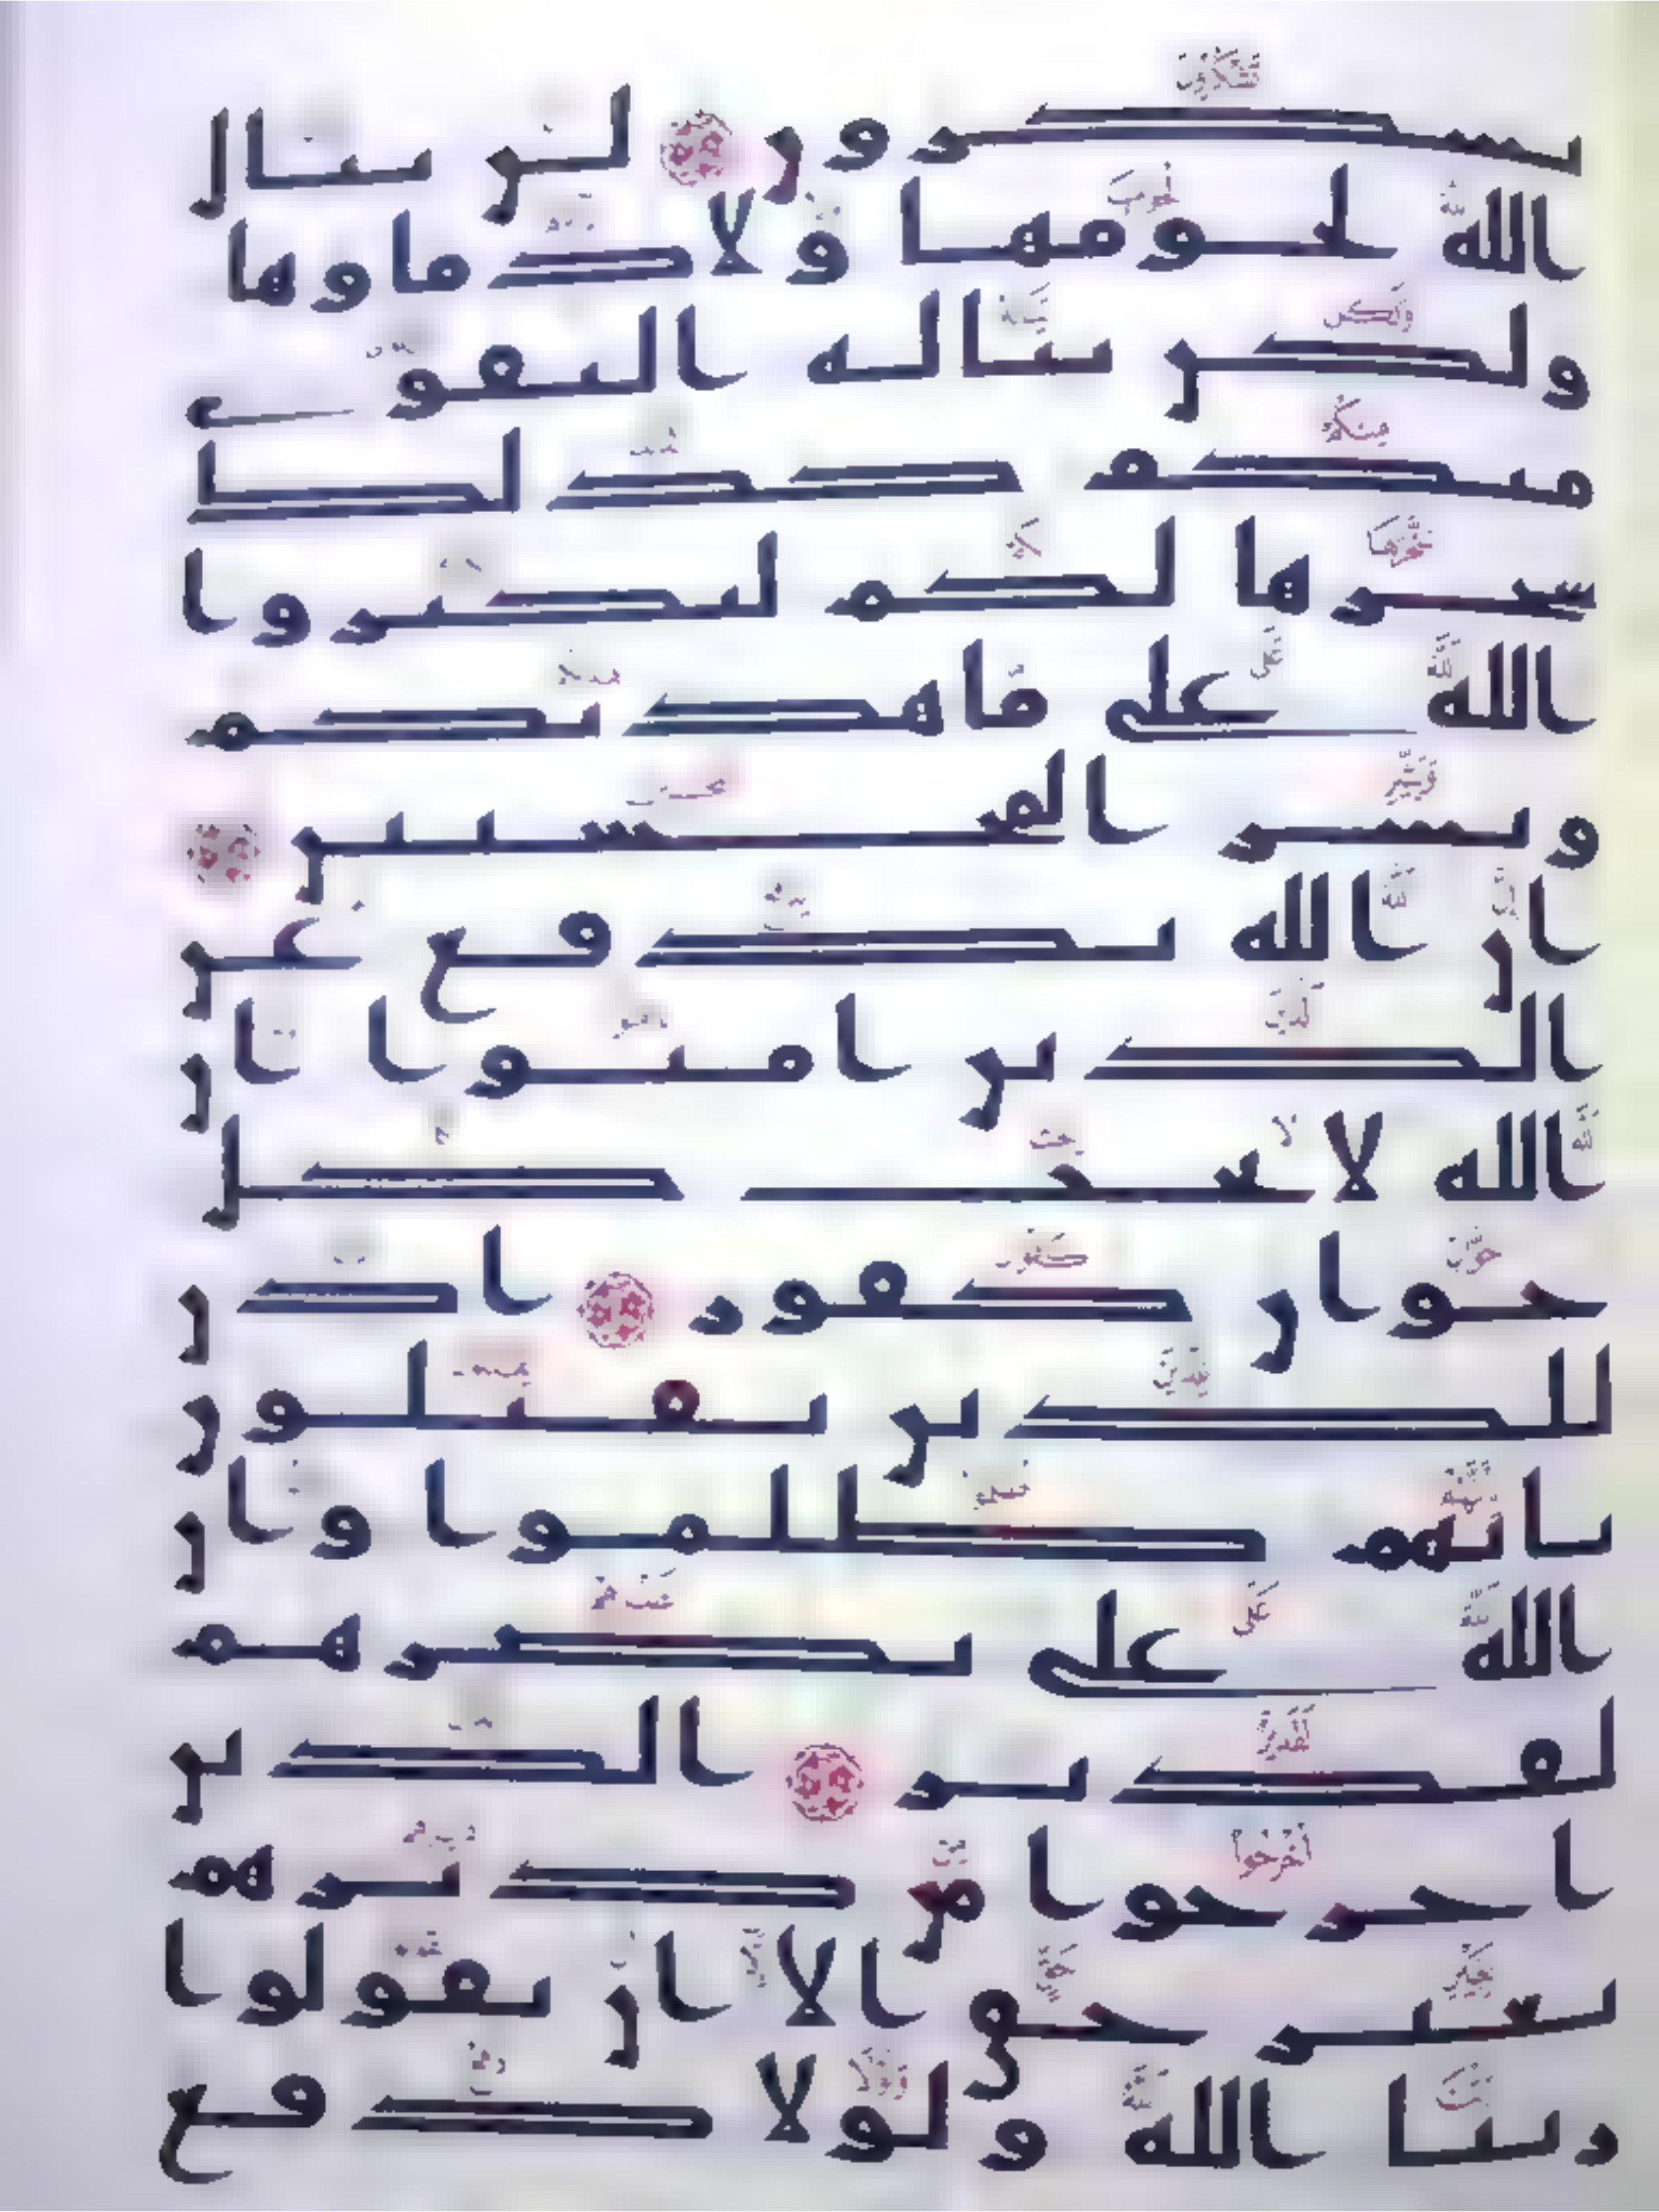 تشكرون لن ينال
الله لحومها ولا دماوها
ولكن يناله التقوى
منكم كذلك
سخرها لكم لتكبروا
الله على ما هديكم
وبشر المحسنين
ان الله يدفع عن
الذين امنوا ان
الله لا يحب كل
خوان كفور اذن
للذين يقتلون
بانهم ظلموا وان
الله على نصرهم
لقدير الذين
اخرجوا من ديرهم
بغير حق الا ان يقولوا
ربنا الله ولولا دفع